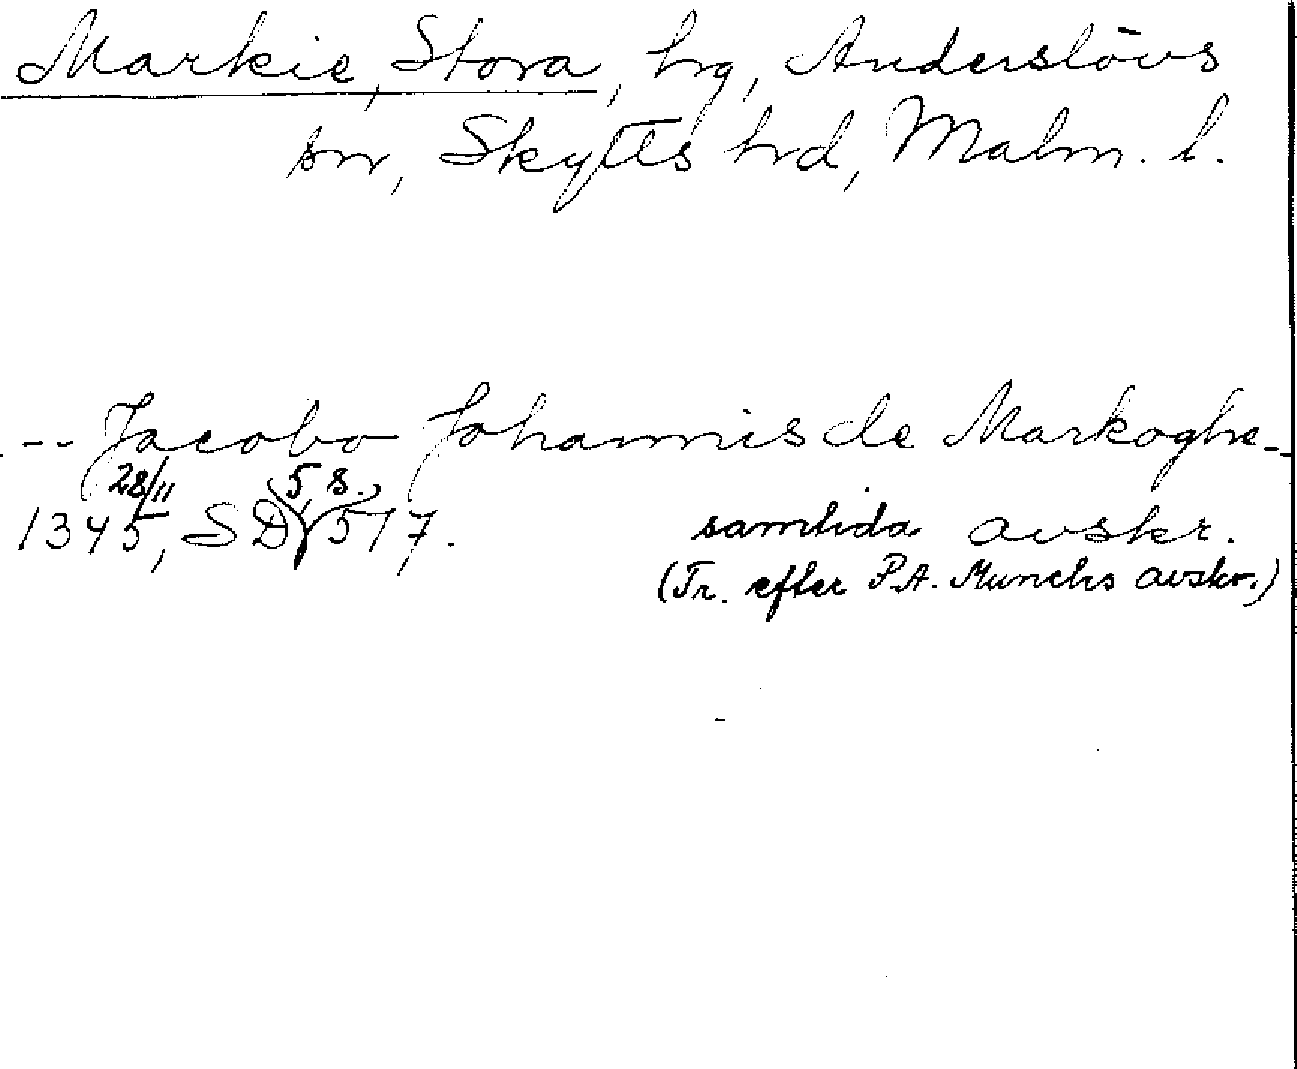 Markie, Stora, hrg, Anderslövs
sn, Skytts hrd, Malm. l.
-- Jacobo Johannis de Markoghe --
28/11 5 s.
1345, SD 517. samtida avskr.
(Tr. efter P.A. Munchs avskr.)